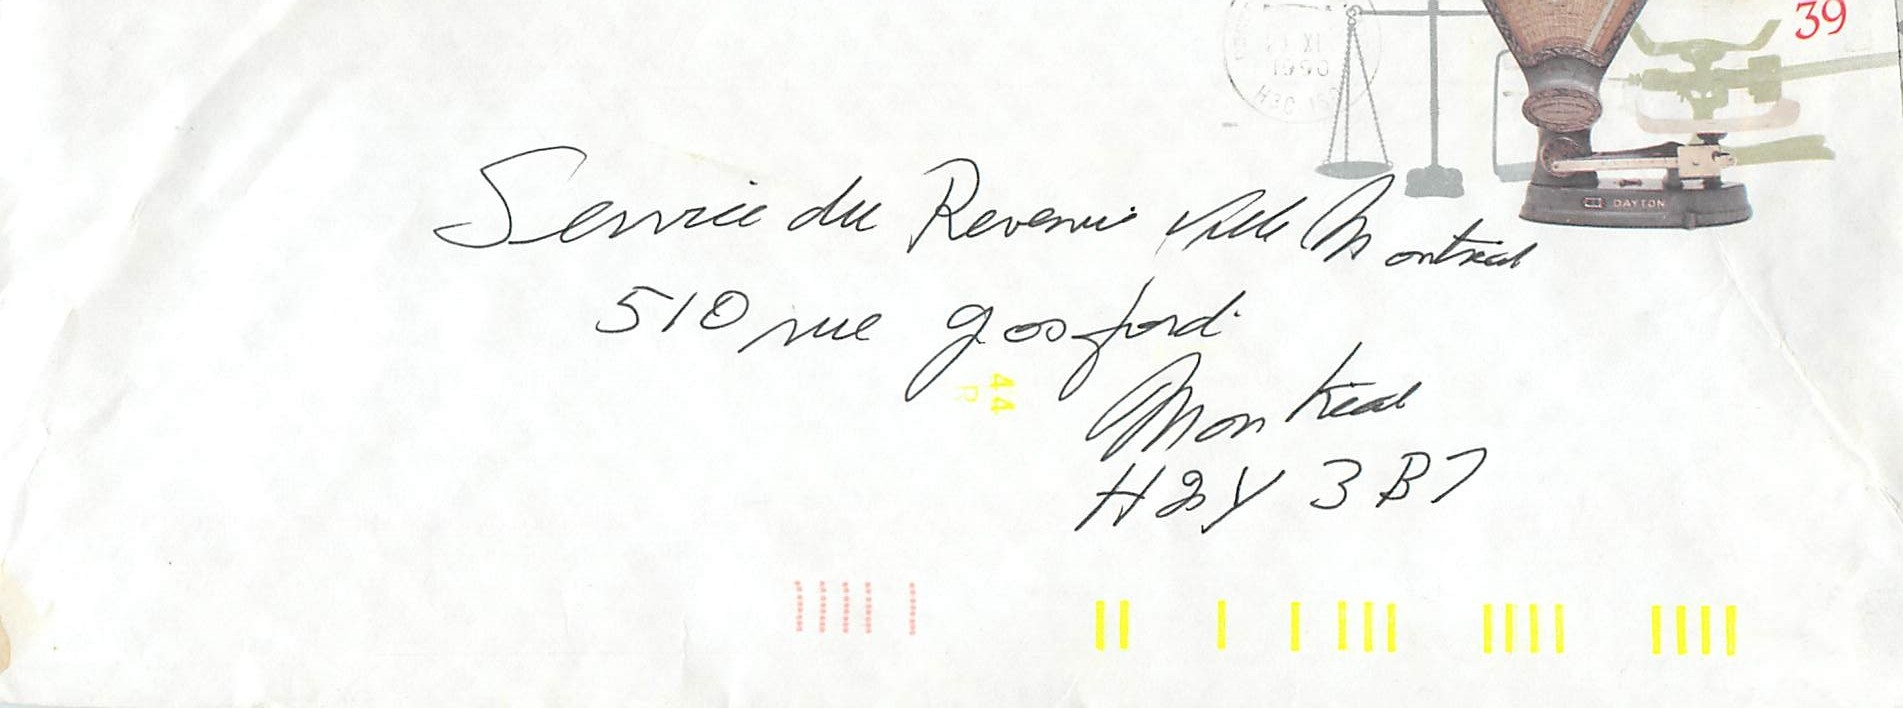 39
XI
1990
H3C
DAYTON
Service du Revenu Ville Montreal
510 rue gosford
Montreal
H2Y 3B7
44
R